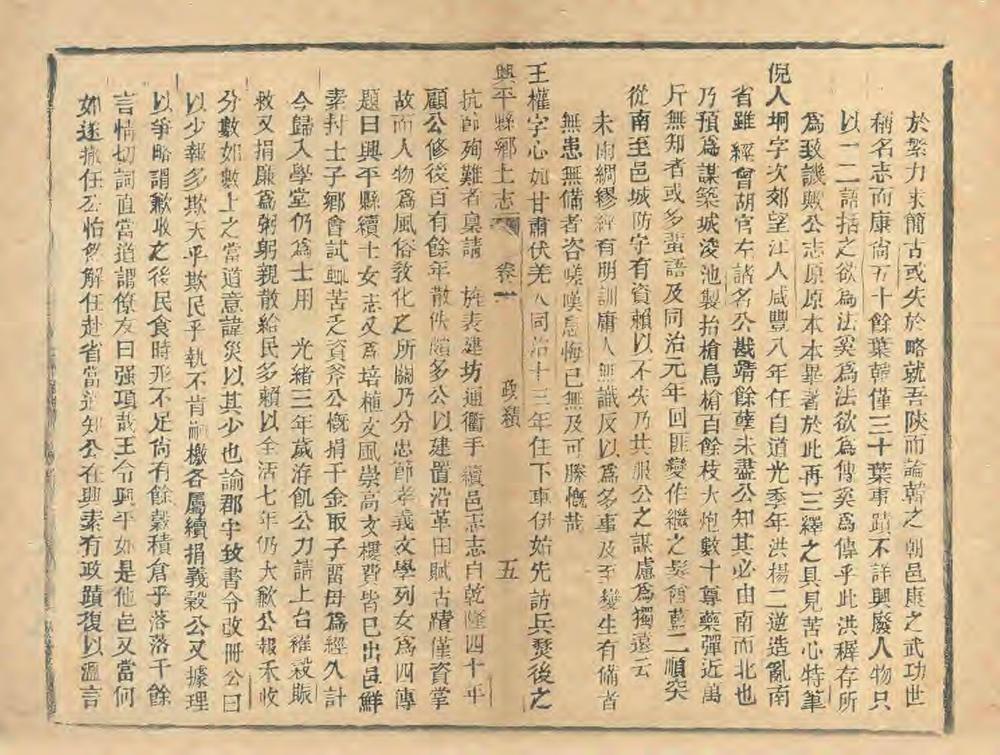 於繁力求簡古或失於略就吾陝而論韓之朝邑康之武功世
稱名志而康尚五十餘葉韓僅三十葉事蹟不詳興廢人物只
以一二語括之欲為法奚為法欲為傳奚為傳乎此洪穉存所
為致譏與公志原原本本畢著於此再三繹之具見苦心特筆
倪人垌字次郊望江人咸豐八年任自道光季年洪楊二逆造亂南
省雖經曾胡官左諸名公戡靖餘孽未盡公知其必由南而北也
乃預為謀築城浚池製抬槍鳥槍百餘枝大炮數十尊藥彈近萬
斤無知者或多蜚語及同治元年回匪變作繼之髮酋藍二順突
從南至邑城防守有資賴以不失乃共服公之謀慮為獨遠云
未雨綢繆經有明訓庸人無識反以為多事及至變生有備者
無患無備者咨嗟嘆息悔已無及可勝慨哉
王權字心如甘肅伏羌人同治十三年任下車伊始先訪兵燹後之
興平縣鄉土志 卷一 政績 五
抗節殉難者稟請 旌表建坊通衢手續邑志志自乾隆四十年
顧公修後百有餘年散佚頗多公以建置沿革田賦古蹟僅資掌
故而人物為風俗敎化之所關乃分忠節孝義文學列女為四傳
題曰興平縣續士女志又為培植文風崇高文樓費皆已出邑鮮
素封士子鄉會試輒苦乏資斧公慨捐千金取子留母為經久計
今歸入學堂仍為士用 光緒三年歲洊飢公力請上台糴穀賑
救又捐廉為粥躬親散給民多賴以全活七年仍大歉公報禾收
分數如數上之當道意諱災以其少也諭郡守致書令改冊公曰
以少報多欺天乎欺民乎執不肯嗣檄各屬續捐義穀公又據理
以爭略謂歉收之後民食時形不足尚有餘穀積倉乎落落千餘
言情切詞直當道謂僚友曰强項哉王令興平如是他邑又當何
如遂撤任公怡然解任赴省當道知公在興素有政蹟復以溫言